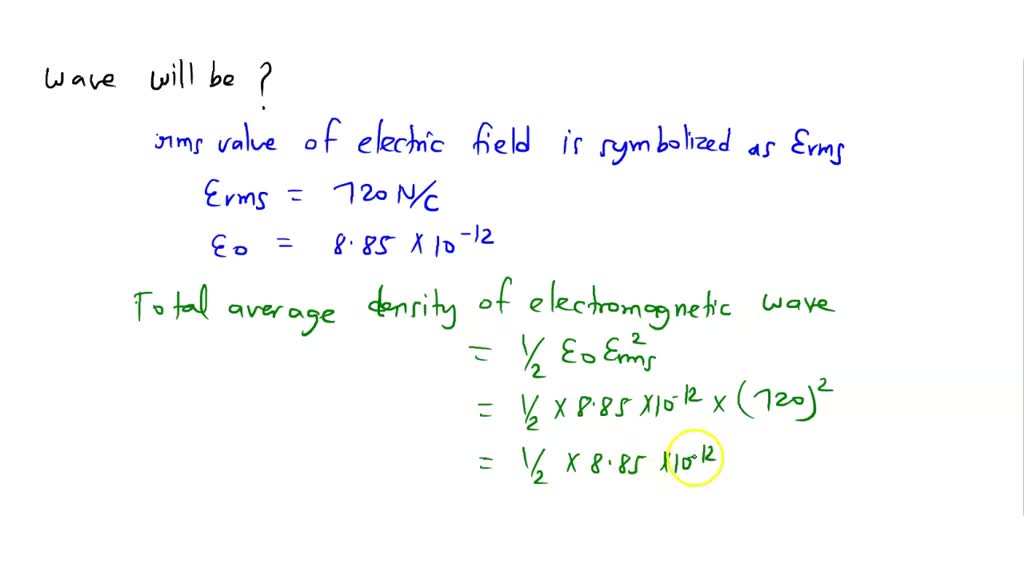 wave will be ?
rms value of electric field is symbolized as Erms
Erms = 720 N/C
ε0 = 8.85 × 10⁻¹²
Total average density of electromagnetic wave
= 1/2 ε0 Erms²
= 1/2 × 8.85 × 10⁻¹² × (720)²
= 1/2 × 8.85 × 10⁻¹²